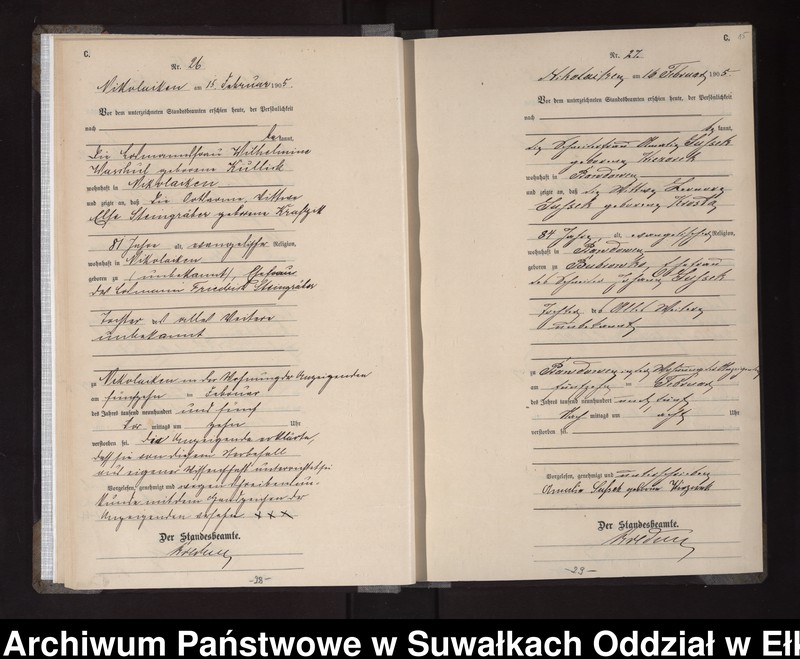 C.
Nr. 26
Nikolaiken am 15. Februar 1905.
Vor dem unterzeichneten Standesbeamten erschien heute, der Persönlichkeit
nach
be kannt,
die Losmannsfrau Wilhelmine
geborene Kullik
wohnhaft in Nikolaiken
und zeigte an, daß die Ortsarme, Wittwe
Else Steingräber geborene
81 Jahre alt, evangelischer Religion,
wohnhaft in Nikolaiken
geboren zu (unbekannt), Ehefrau
des Losmanns Friedrich Steingräber
Tochter des alles Weitere
unbekannt
zu Nikolaiken in der Wohnung der Anzeigenden
am fünfzehn ten Februar
des Jahres tausend neunhundert und fünf
Vor mittags um zehn Uhr
verstorben sei. Die Anzeigende erklärte,
daß sie von diesem Sterbefall
aus eigener Wissenschaft unterrichtet sei
Vorgelesen, genehmigt und wegen Schreibensun-
kunde mit dem Handzeichen der
Anzeigenden versehen xxx
Der Standesbeamte.
-28-
C. 15
Nr. 27.
Nikolaiken am 16 Februar 1905.
Vor dem unterzeichneten Standesbeamten erschien heute, der Persönlichkeit
nach
be kannt,
die Amalie Sussek
geborene
wohnhaft in
und zeigte an, daß die Wittwe
Sussek geborene
84 Jahre alt, evangelischer Religion,
wohnhaft in
geboren zu Ehefrau
des Sussek
Tochter des Alles Weitere
unbekannt
zu in der Wohnung der Anzeigenden
am fünfzehn ten Februar
des Jahres tausend neunhundert und fünf
Nach mittags um acht Uhr
verstorben sei.
Vorgelesen, genehmigt und unterschrieben
Amalie Sussek geborene
Der Standesbeamte.
-29-
Archiwum Państwowe w Suwałkach Oddział w Ełk